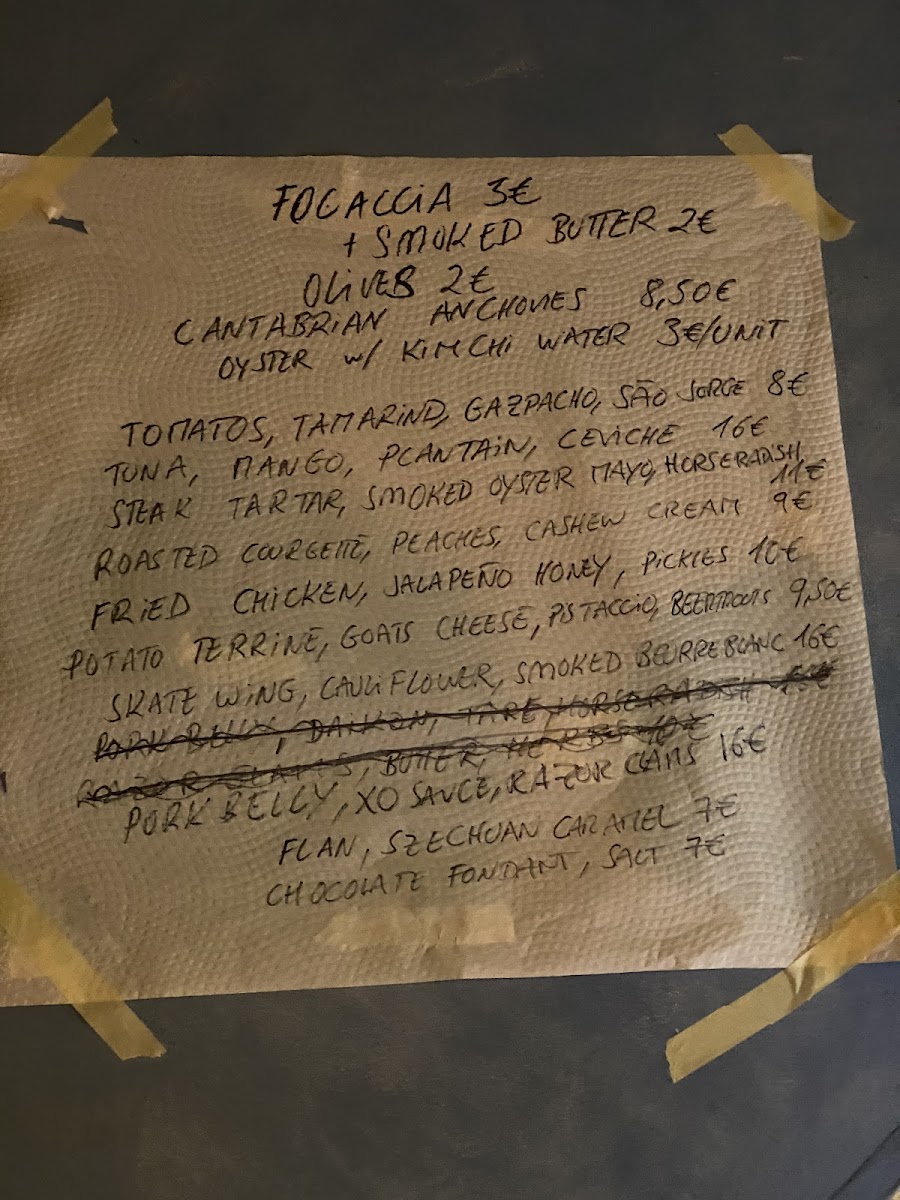 FOCACCIA 3€
+ SMOKED BUTTER 2€
OLIVES 2€
CANTABRIAN ANCHOVIES 8,50€
OYSTER w/ KIMCHI WATER 3€/UNIT
TOMATOS, TAMARIND, GAZPACHO, SÃO JORGE 8€
TUNA, MANGO, PLANTAIN, CEVICHE 16€
STEAK TARTAR, SMOKED OYSTER MAYO, HORSERADISH
11€
ROASTED COURGETTE, PEACHES, CASHEW CREAM 9€
FRIED CHICKEN, JALAPEÑO HONEY, PICKLES 10€
POTATO TERRINE, GOATS CHEESE, PISTACCIO, BEERTROOTS 9,50€
SKATE WING, CAULIFLOWER, SMOKED BEURRE BLANC 16€
PORK BELLY, DAIKON, TARE, HORSERADISH
RAZOR CLAMS, BUTTER, HERBS 10€
PORK BELLY, XO SAUCE, RAZOR CLAMS 16€
FLAN, SZECHUAN CARAMEL 7€
CHOCOLATE FONDANT, SALT 7€